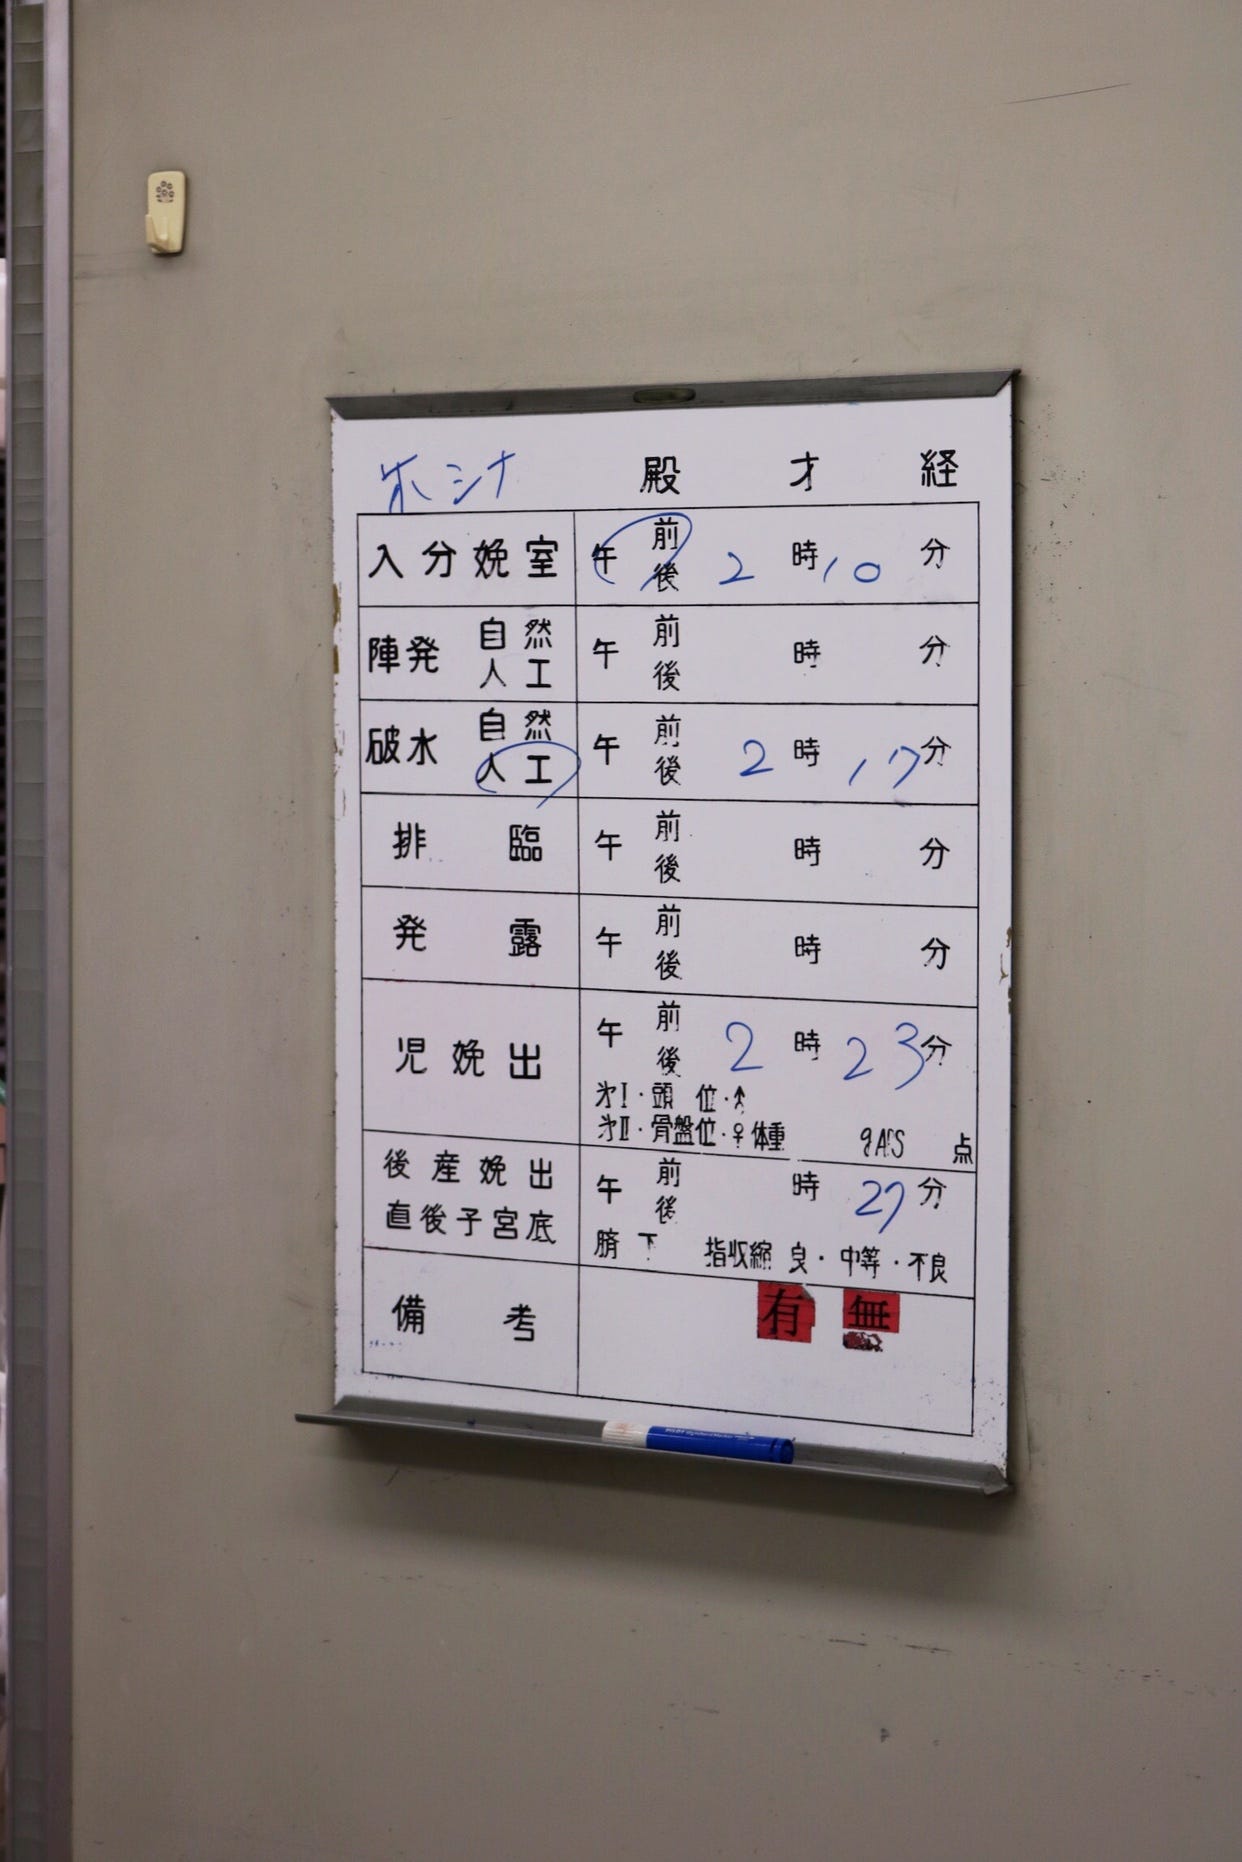 ホシナ 殿 才 経
入分娩室 午前後 2時10分
陣発 自然人工 午前後 時 分
破水 自然人工 午前後 2時17分
排臨 午前後 時 分
発露 午前後 時 分
児娩出 午前後 2時23分
才I・頭位・♂
才II・骨盤位・♀ 体重 g APS 点
後産娩出 午前後 時 27分
直後子宮底 臍下 指収縮 良・中等・不良
備考 有 無